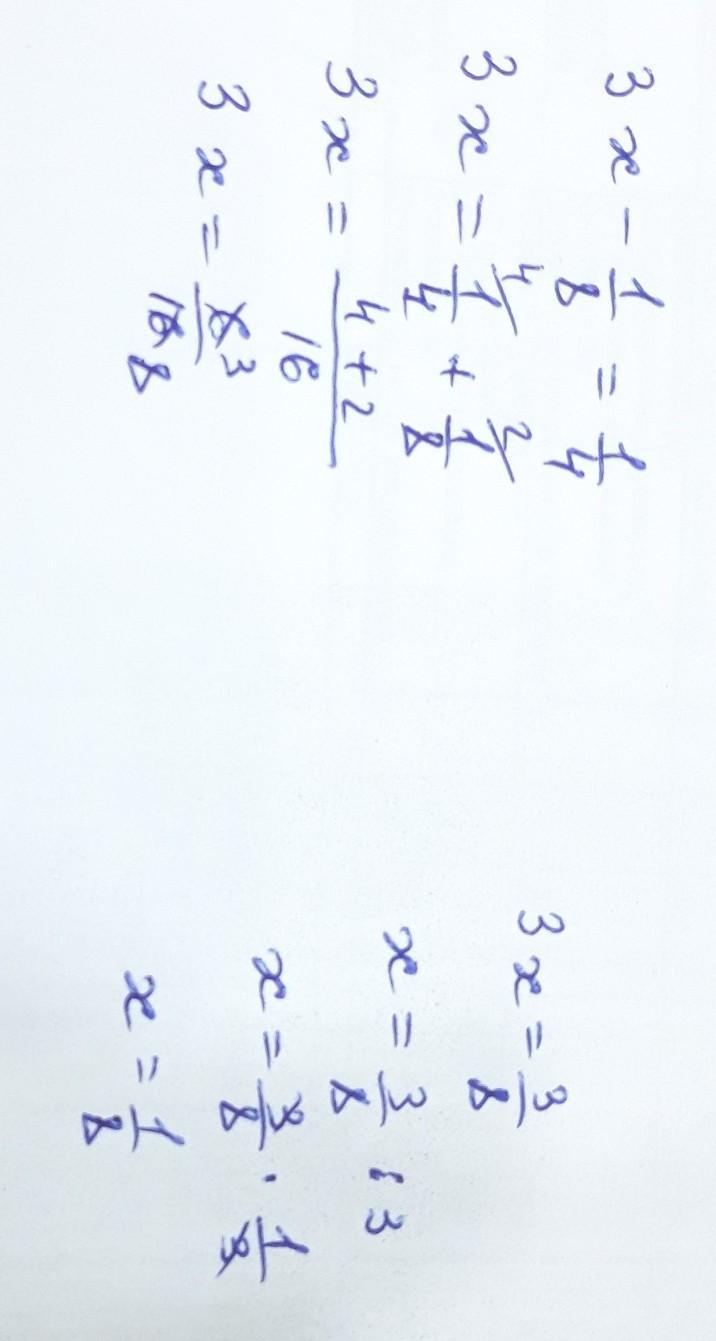 3x - 1/8 = 1/4
3x = 4/ 1/4 + 2/ 1/8
3x = (4+2)/16
3x = 6 3/16 8
3x = 3/8
x = 3/8 : 3
x = 3/8 · 1/3
x = 1/8